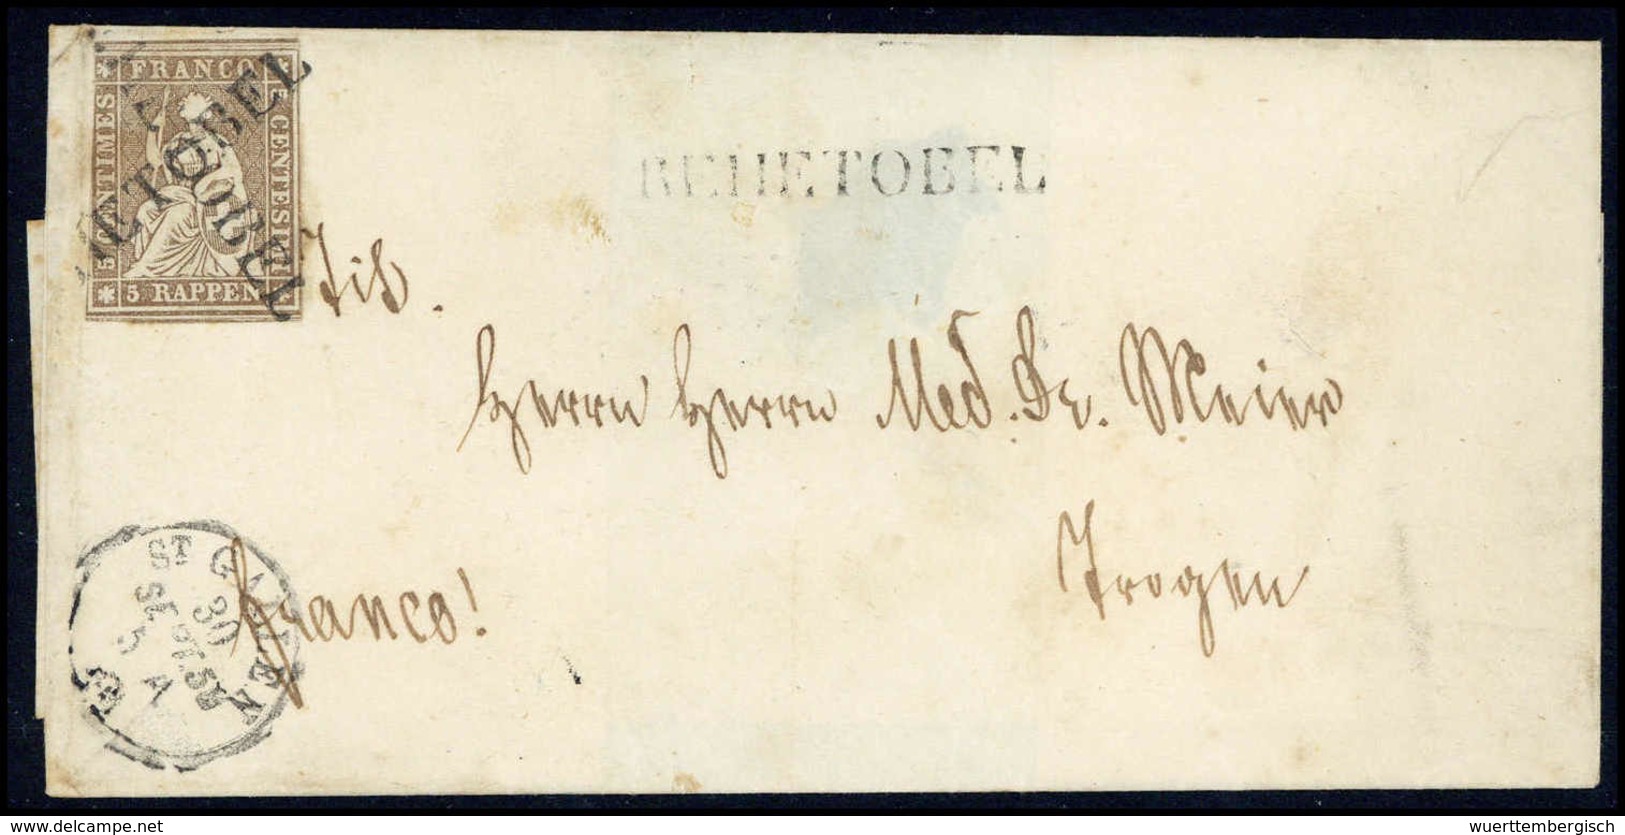 FRANCO
5 CENTIMES
5 CENTESIMI
5 RAPPEN
TOBEL
OBEL
REHETOBEL
Tit.
Herrn Herrn Med. Dr. Meier
Trogen
franco!
ST GALLEN
30
SEPT 58
5 A
delcampe.net
wuerttembergisch